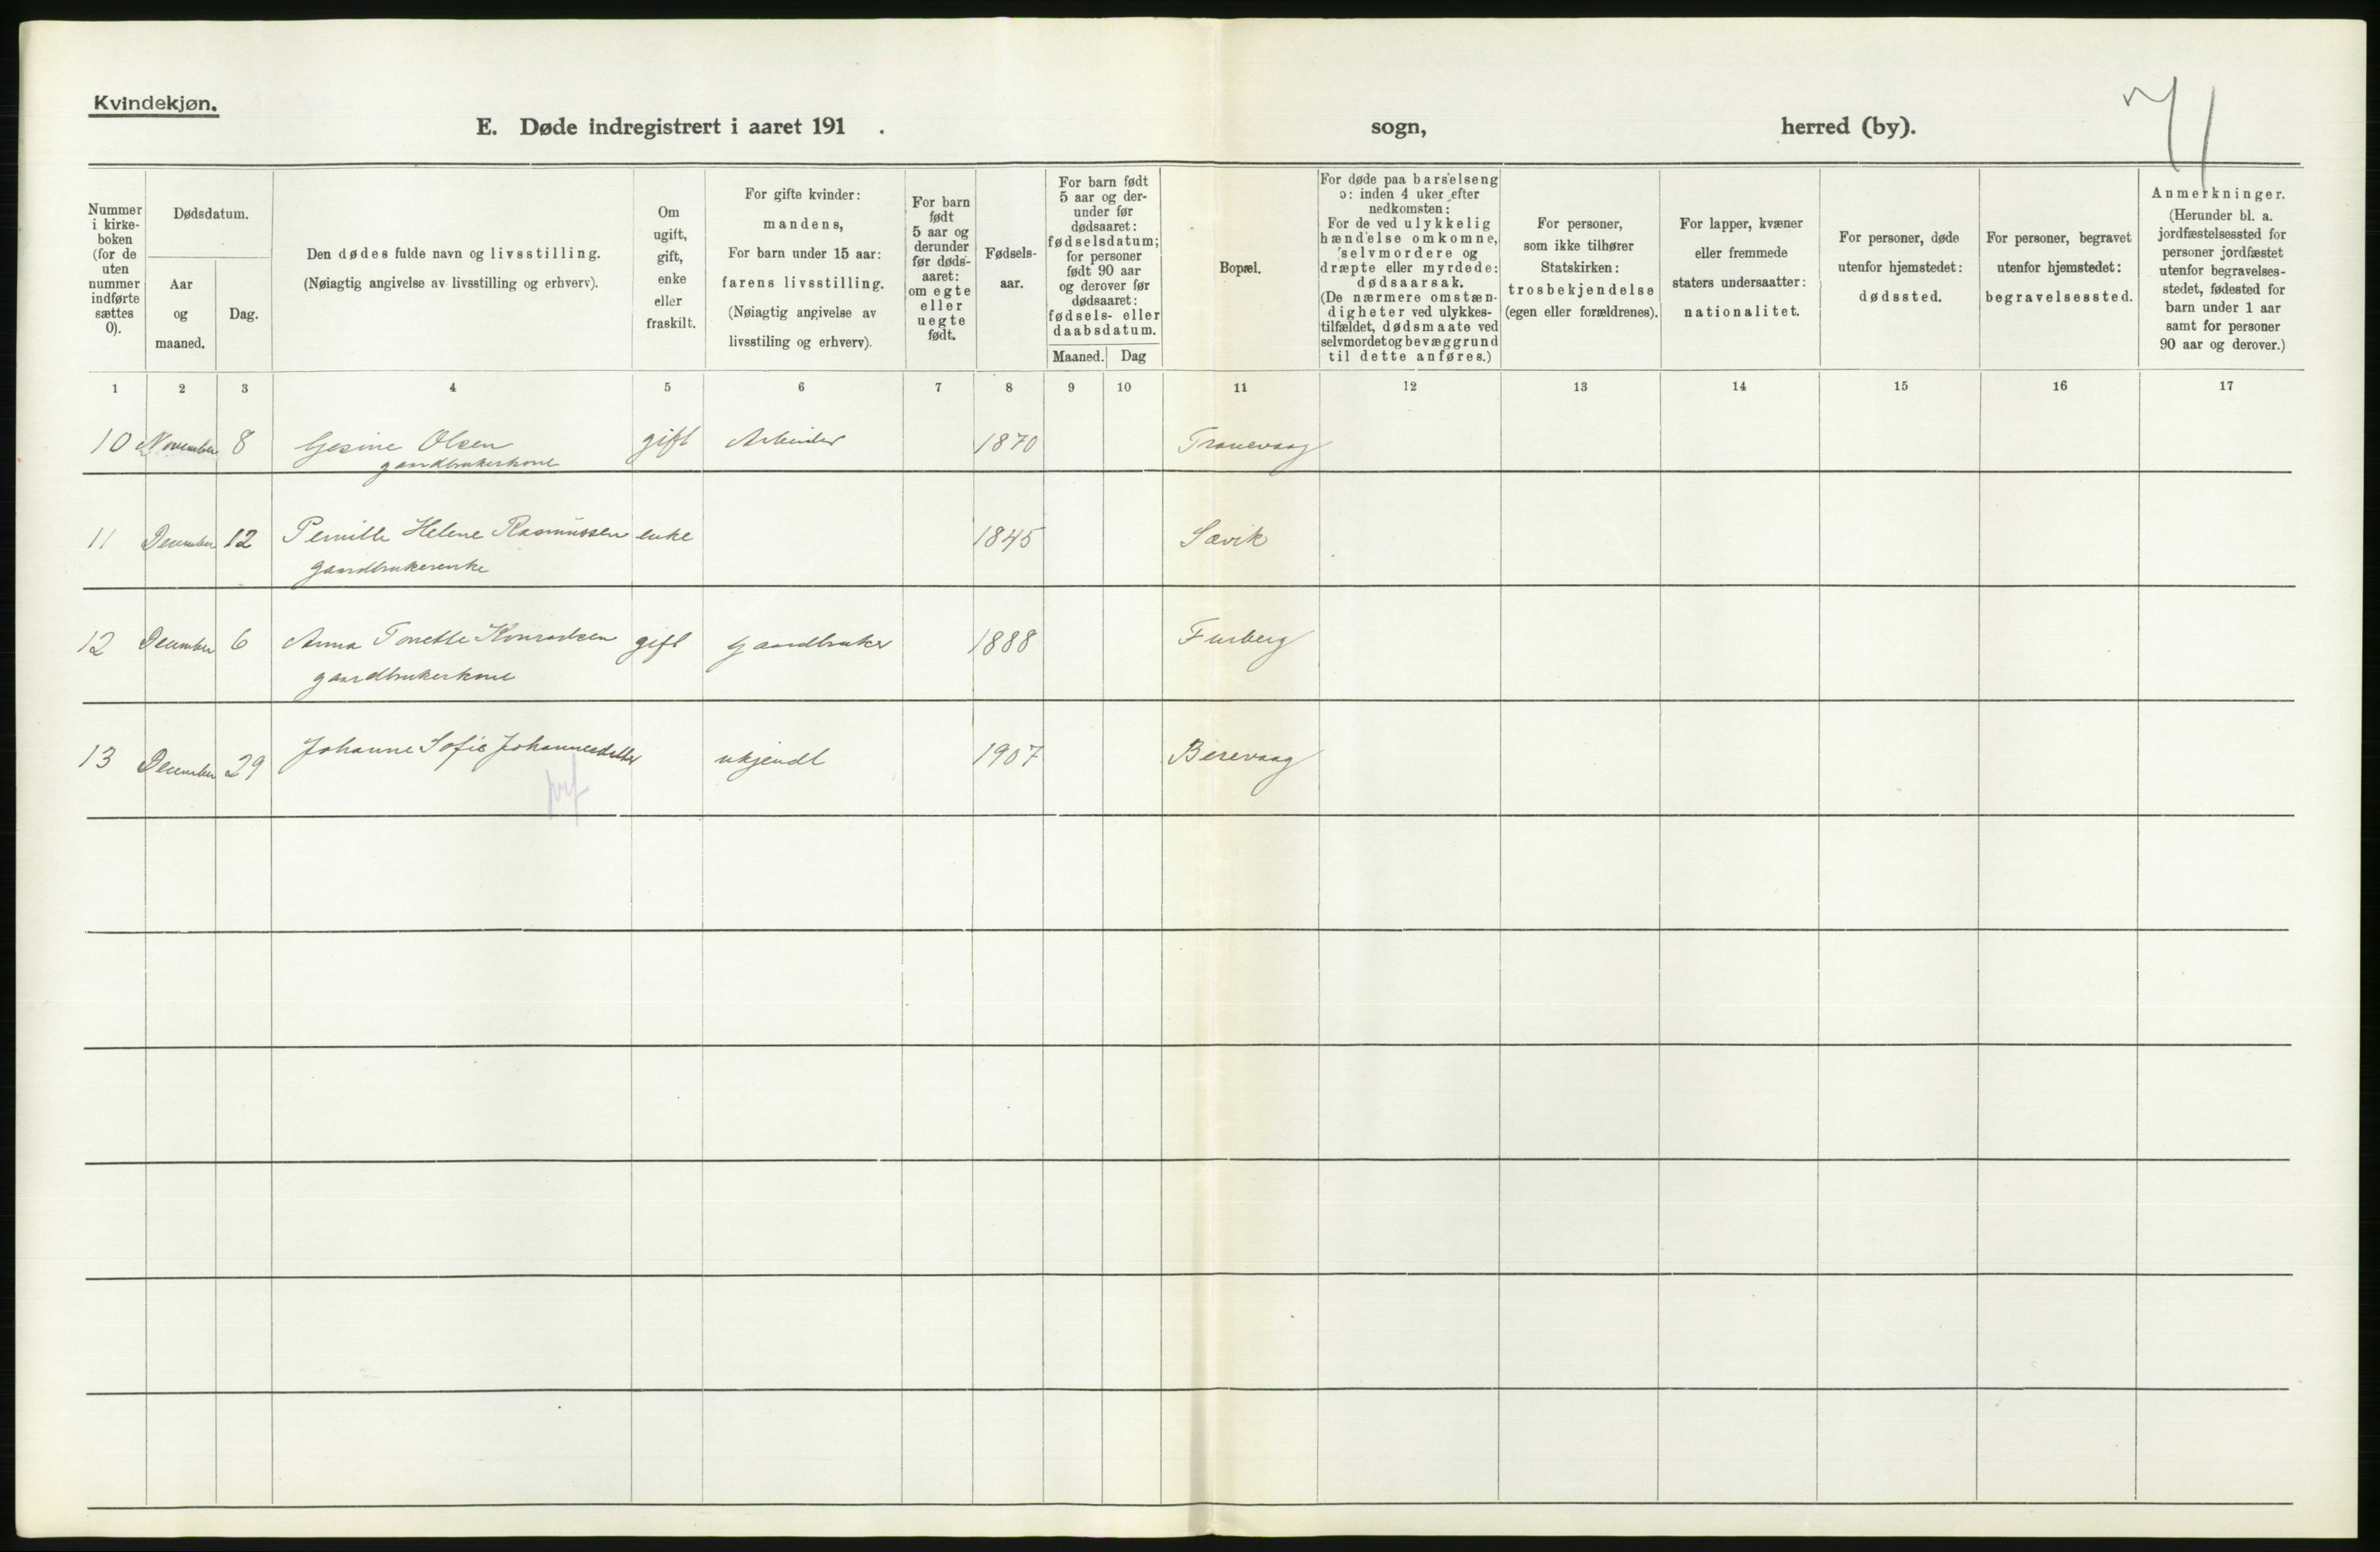 Kvindekjøn.
E. Døde indregistrert i aaret 191 . sogn, herred (by).
71
Nummer i kirke-boken (for de uten nummer indførte sættes 0).
Dødsdatum.
Aar og maaned.
Dag.
Den dødes fulde navn og livsstilling.
(Nøiagtig angivelse av livsstilling og erhverv).
Om ugift, gift, enke eller fraskilt.
For gifte kvinder:
mandens,
For barn under 15 aar:
farens livsstilling.
(Nøiagtig angivelse av
livsstiling og erhverv).
For barn født 5 aar og derunder før døds-aaret: om egte eller uegte født.
Fødsels-aar.
For barn født 5 aar og der-under før dødsaaret: fødselsdatum; for personer født 90 aar og derover før dødsaaret: fødsels- eller daabsdatum.
Maaned. Dag
Bopæl.
For døde paa barselseng
ɔ: inden 4 uker efter
nedkomsten:
For de ved ulykkelig
hændelse omkomne,
selvmordere og
dræpte eller myrdede:
dødsaarsak.
(De nærmere omstæn-
digheter ved ulykkes-
tilfældet, dødsmaate ved
selvmordet og bevæggrund
til dette anføres.)
For personer,
som ikke tilhører
Statskirken:
trosbekjendelse
(egen eller forældrenes).
For lapper, kvæner
eller fremmede
staters undersaatter:
nationalitet.
For personer, døde
utenfor hjemstedet:
dødssted.
For personer, begravet
utenfor hjemstedet:
begravelsessted.
Anmerkninger.
(Herunder bl. a.
jordfæstelsessted for
personer jordfæstet
utenfor begravelses-
stedet, fødested for
barn under 1 aar
samt for personer
90 aar og derover.)
1 2 3 4 5 6 7 8 9 10 11 12 13 14 15 16 17
10 November 8 Gesine Olsen gift Arbeider 1870 Tranevaag
gaardbrukerkone
11 December 12 Pernille Helene Rasmussen enke 1845 Sævik
gaardbrukerenke
12 December 6 Anna Tonette Konradsen gift gaardbruker 1888 Furberg
gaardbrukerkone
13 December 29 Johanne Sofie Johannesdatter ukjendt 1907 Berevaag